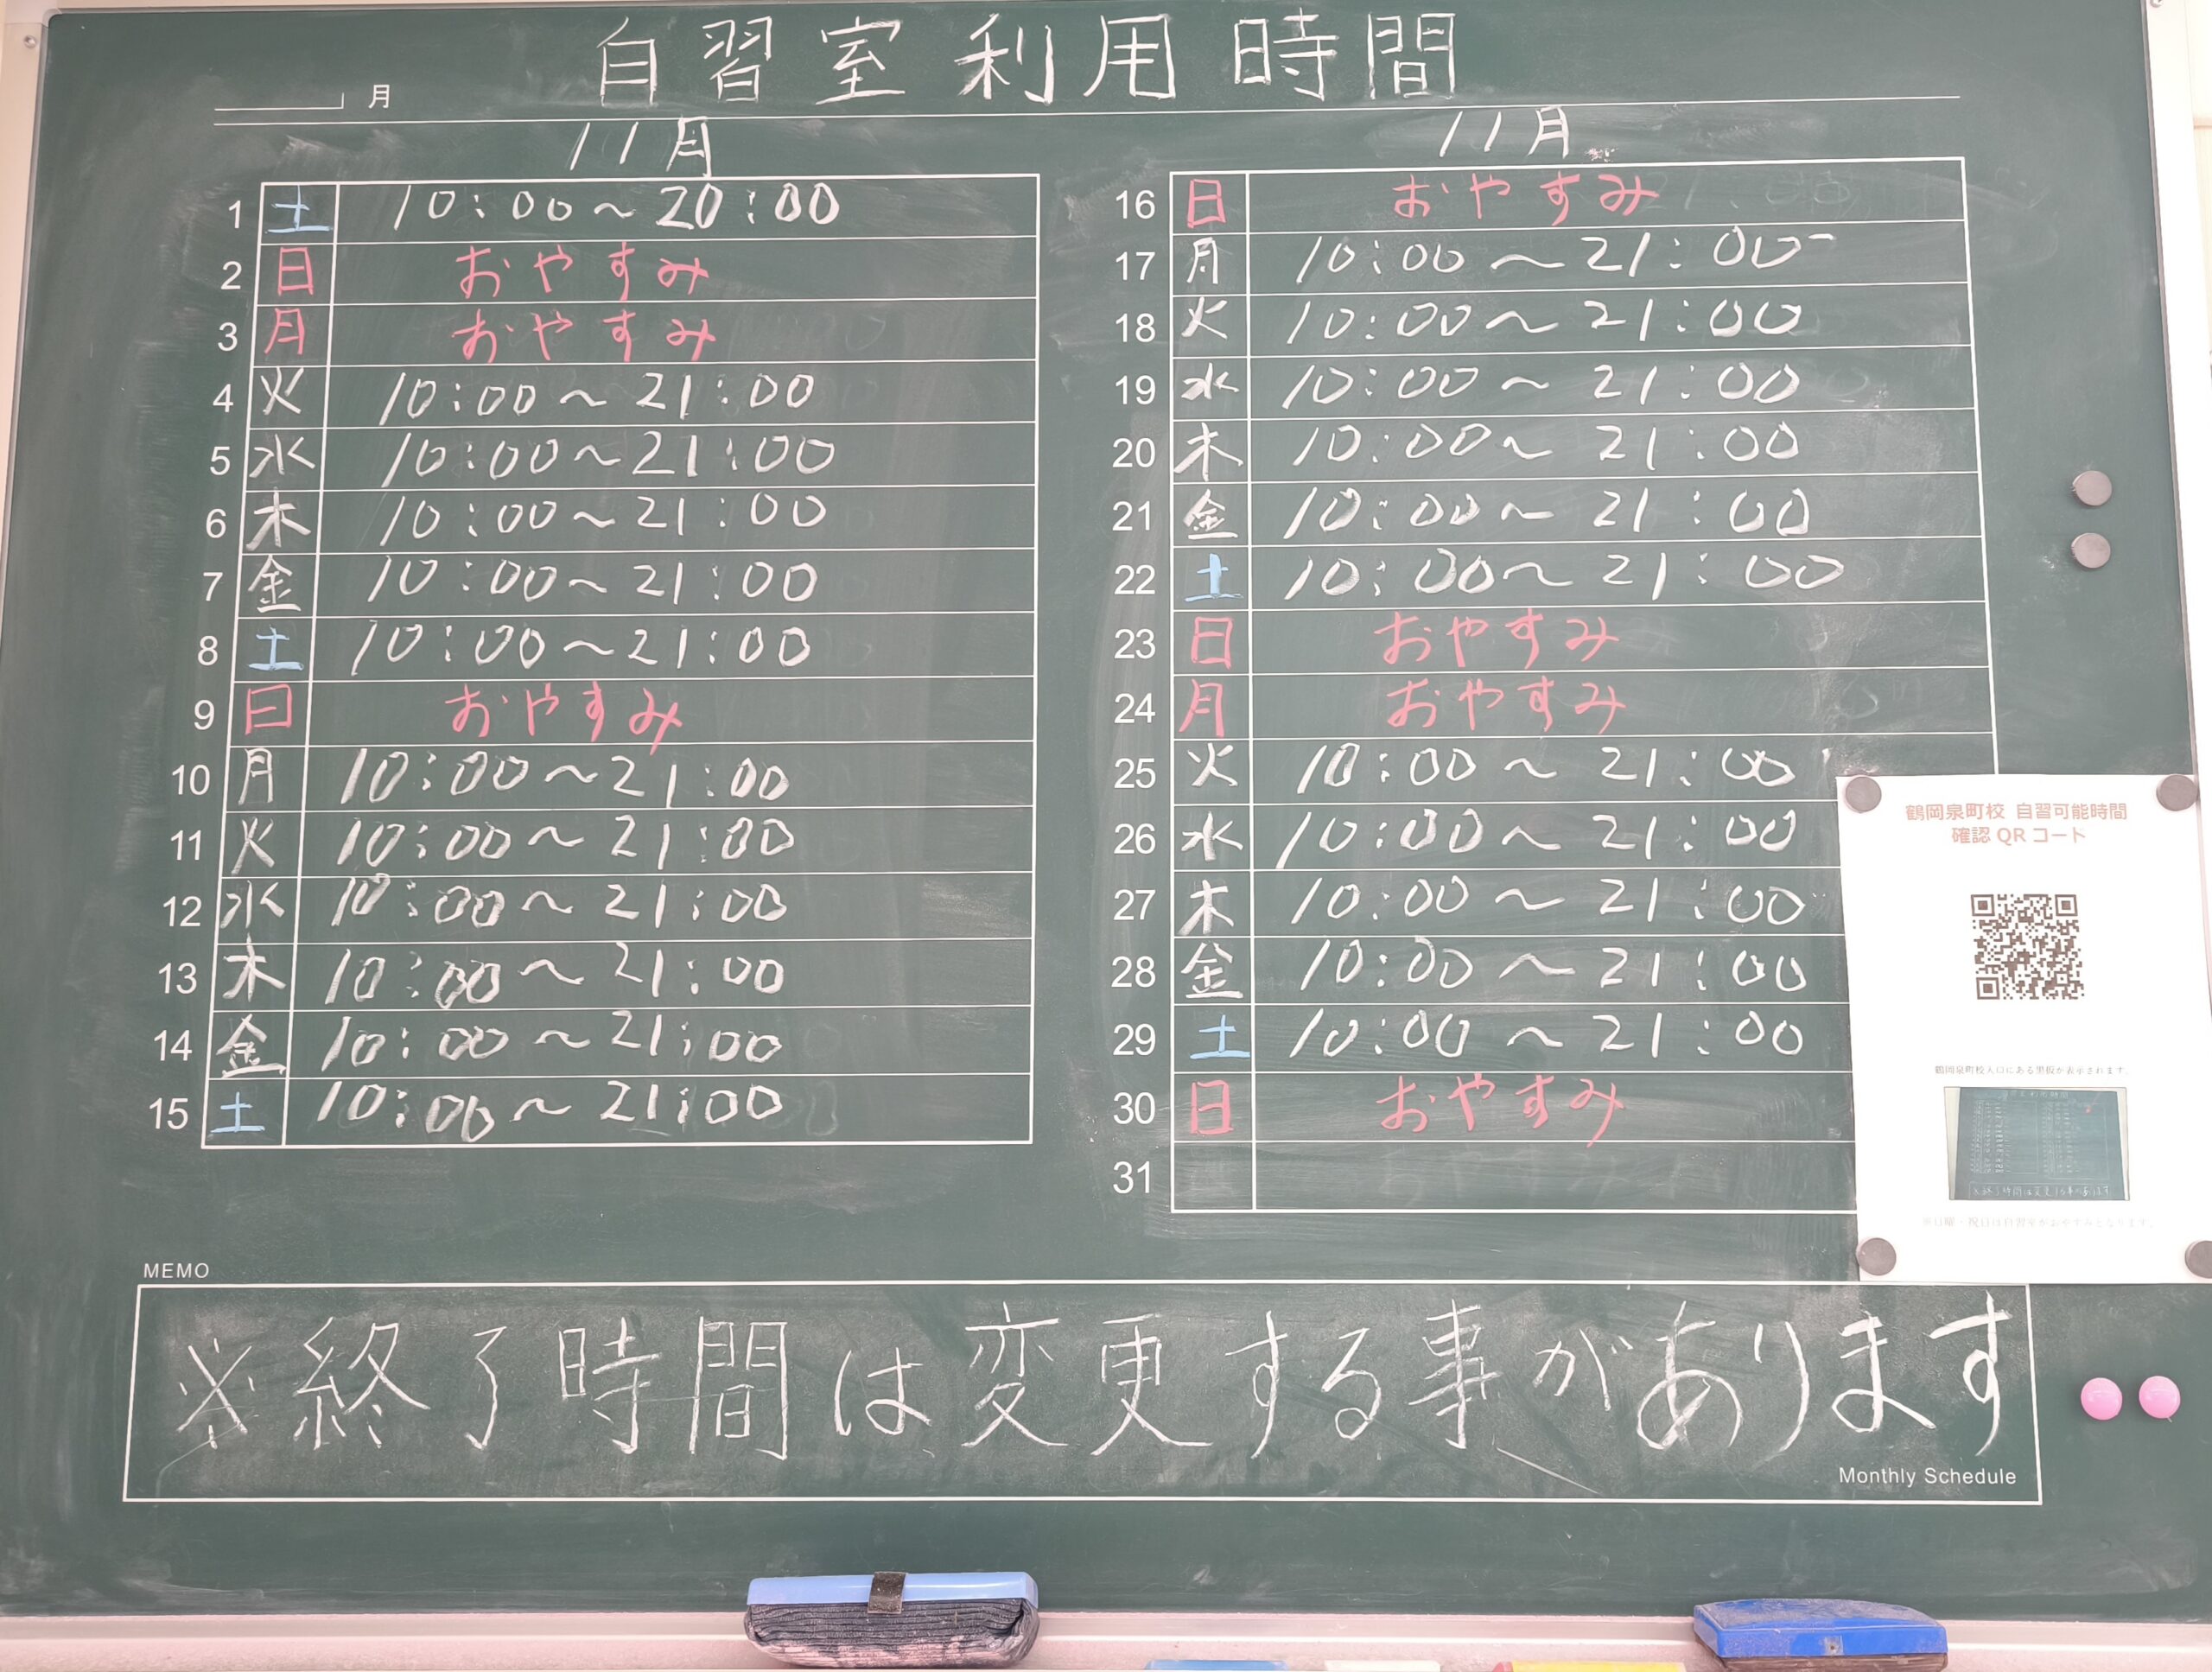 自習室利用時間
月
11月
1 土 10:00~20:00
2 日 おやすみ
3 月 おやすみ
4 火 10:00~21:00
5 水 10:00~21:00
6 木 10:00~21:00
7 金 10:00~21:00
8 土 10:00~21:00
9 日 おやすみ
10 月 10:00~21:00
11 火 10:00~21:00
12 水 10:00~21:00
13 木 10:00~21:00
14 金 10:00~21:00
15 土 10:00~21:00
11月
16 日 おやすみ
17 月 10:00~21:00
18 火 10:00~21:00
19 水 10:00~21:00
20 木 10:00~21:00
21 金 10:00~21:00
22 土 10:00~21:00
23 日 おやすみ
24 月 おやすみ
25 火 10:00~21:00
26 水 10:00~21:00
27 木 10:00~21:00
28 金 10:00~21:00
29 土 10:00~21:00
30 日 おやすみ
31
鶴岡泉町校 自習可能時間
確認QRコード
鶴岡泉町校入口にある黒板が表示されます。
※日曜・祝日は自習室がおやすみとなります。
MEMO
※終了時間は変更する事があります
Monthly Schedule